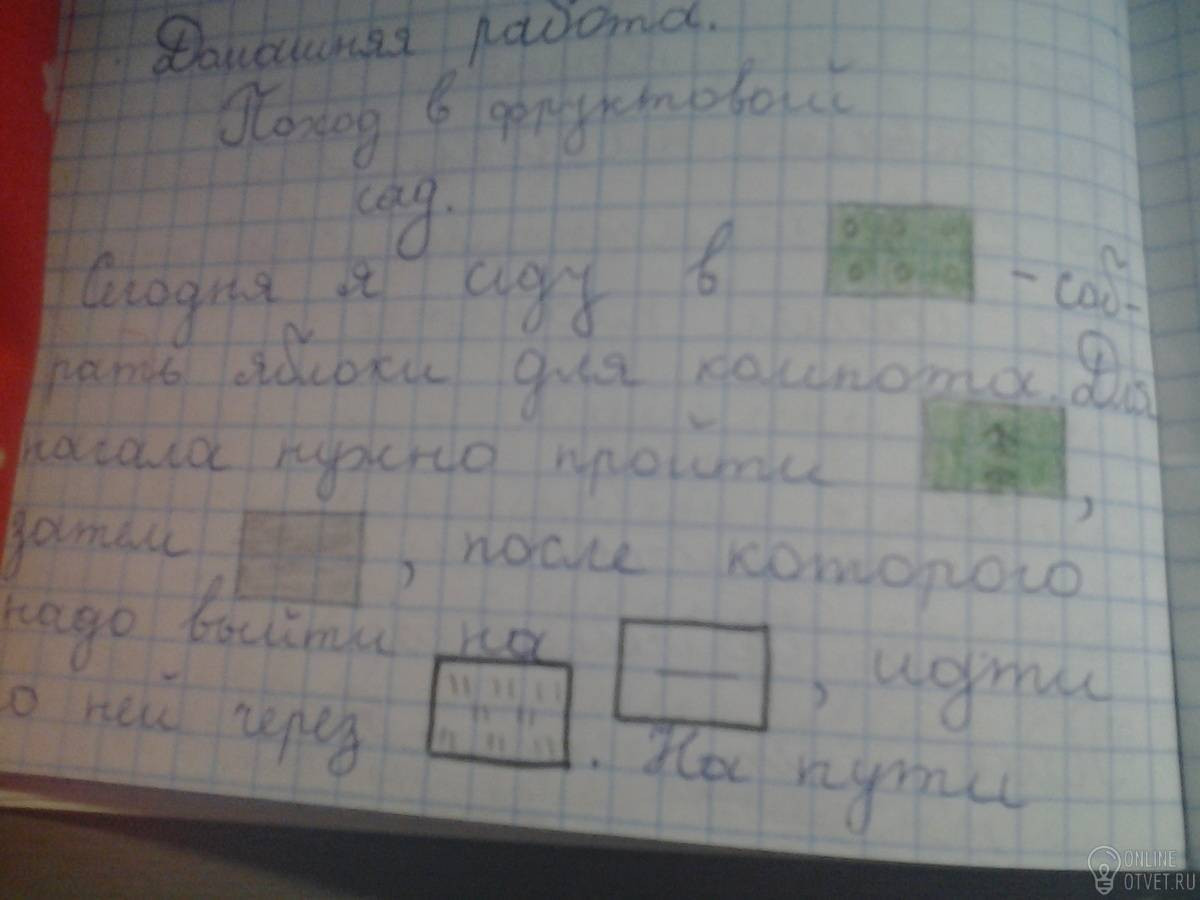 Домашняя работа.
Поход в фруктовый
сад.
Сегодня я иду в - соб-
рать яблоки для компота. Для
начала нужно пройти ,
затем , после которого
надо выйти на , идти
о ней через . На пути
ONLINE
OTVET.RU